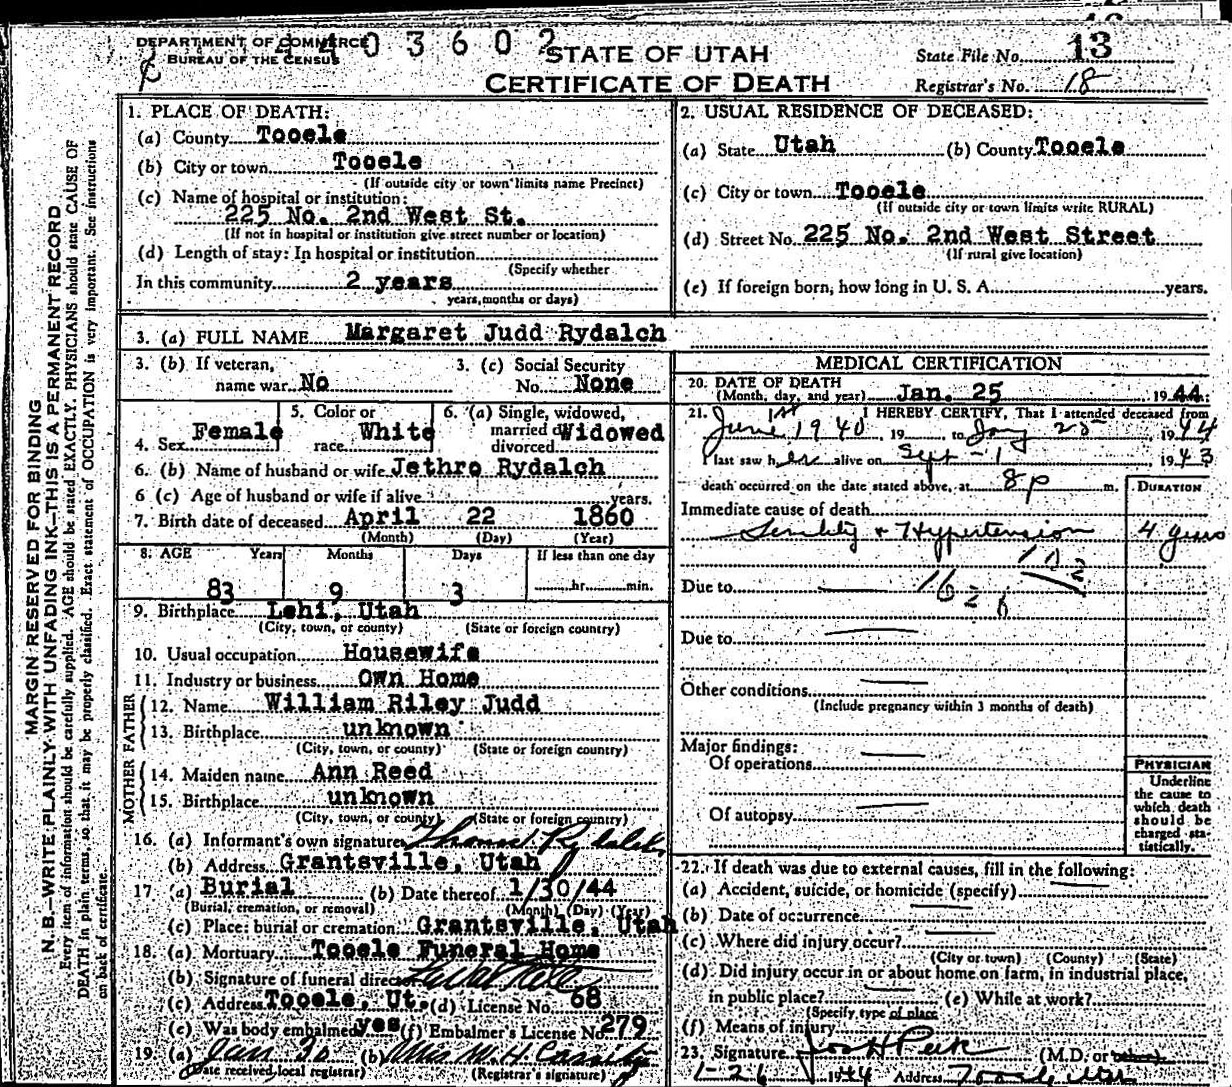 DEPARTMENT OF COMMERCE
BUREAU OF THE CENSUS
STATE OF UTAH
CERTIFICATE OF DEATH
State File No. 13
Registrar's No. 18
MARGIN RESERVED FOR BINDING
N. B.—WRITE PLAINLY WITH UNFADING INK—THIS IS A PERMANENT RECORD
Every item of information should be carefully supplied. AGE should be stated EXACTLY. PHYSICIANS should state CAUSE OF
DEATH in plain terms, so that it may be properly classified. Exact statement of OCCUPATION is very important. See instructions
on back of certificate.
1. PLACE OF DEATH:
(a) County Tooele
(b) City or town Tooele
(If outside city or town limits name Precinct)
(c) Name of hospital or institution:
225 No. 2nd West St.
(If not in hospital or institution give street number or location)
(d) Length of stay: In hospital or institution
(Specify whether
In this community 2 years
years, months or days)
2. USUAL RESIDENCE OF DECEASED:
(a) State Utah (b) County Tooele
(c) City or town Tooele
(If outside city or town limits write RURAL)
(d) Street No. 225 No. 2nd West Street
(If rural give location)
(e) If foreign born, how long in U. S. A. years.
3. (a) FULL NAME Margaret Judd Rydalch
3. (b) If veteran,
name war No
3. (c) Social Security
No. None
4. Sex Female
5. Color or
race White
6. (a) Single, widowed,
married d Widowed
divorced
6. (b) Name of husband or wife Jethro Rydalch
6 (c) Age of husband or wife if alive years.
7. Birth date of deceased April 22 1860
(Month) (Day) (Year)
8. AGE Years Months Days If less than one day
83 9 3 hr. min.
9. Birthplace Lehi, Utah
(City, town, or county) (State or foreign country)
10. Usual occupation Housewife
11. Industry or business Own Home
FATHER
12. Name William Riley Judd
13. Birthplace unknown
(City, town, or county) (State or foreign country)
MOTHER
14. Maiden name Ann Reed
15. Birthplace unknown
(City, town, or county) (State or foreign country)
16. (a) Informant's own signature Thomas Rydalch
(b) Address Grantsville, Utah
17 (a) Burial (b) Date thereof 1/30/44
(Burial, cremation, or removal) (Month) (Day) (Year)
(c) Place: burial or cremation Grantsville, Utah
18. (a) Mortuary Tooele Funeral Home
(b) Signature of funeral director
(c) Address Tooele, Ut. (d) License No. 68
(e) Was body embalmed yes (f) Embalmer's License No 279
19. (a) Jan 30 (b) W. H. Cassity
(Date received local registrar) (Registrar's signature)
MEDICAL CERTIFICATION
20. DATE OF DEATH
(Month, day, and year) Jan. 25 1944.
21. I HEREBY CERTIFY, That I attended deceased from
June 1st 1940, 19 , to Jany 25 1944
I last saw her alive on Sept - 1 1943
death occurred on the date stated above, at 8 p m.
DURATION
Immediate cause of death
Senility + Hypertension 4 years
Due to
Due to
Other conditions
(Include pregnancy within 3 months of death)
Major findings:
Of operations
Of autopsy
PHYSICIAN
Underline
the cause to
which death
should be
charged sta-
tistically.
22. If death was due to external causes, fill in the following:
(a) Accident, suicide, or homicide (specify)
(b) Date of occurrence
(c) Where did injury occur?
(City or town) (County) (State)
(d) Did injury occur in or about home on farm, in industrial place,
in public place? (e) While at work?
(Specify type of place
(f) Means of injury
23. Signature Jos H Peck (M.D. or other)
1-26 1944 Address Tooele Utah